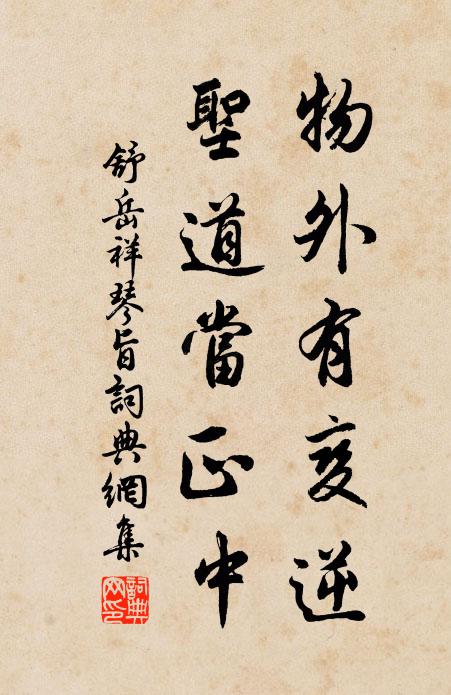 物外有变逆
聖道當正中
舒岳祥琴旨詞典網集
詞典
网印